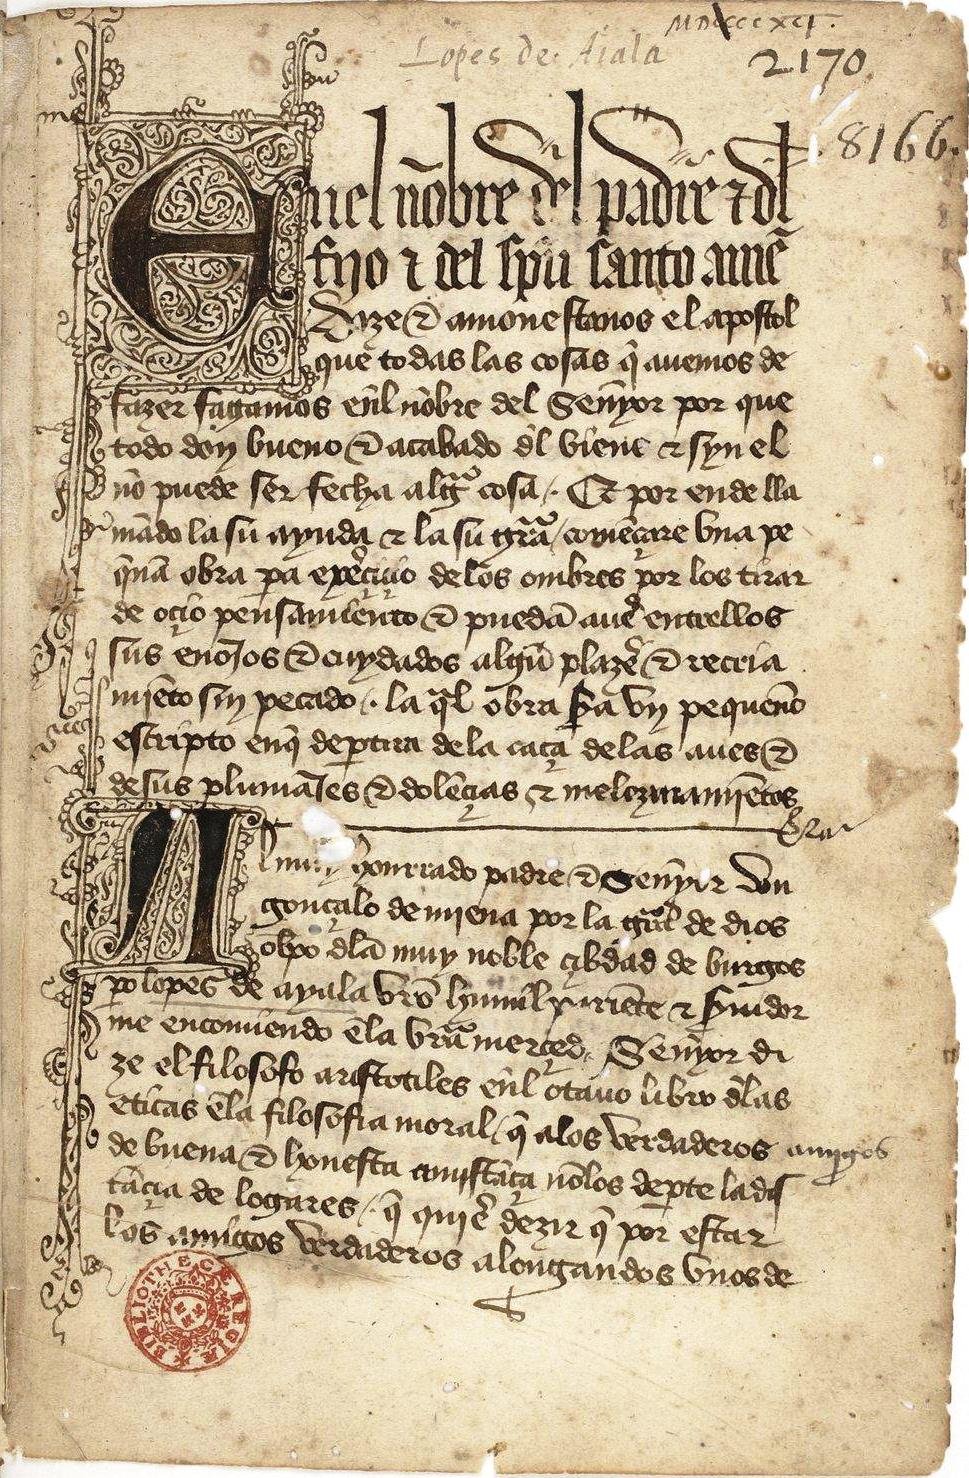 MDCCCXCI.
Lopes de Aiala
2170
8166.
En el nōbre del padre τ dl
fijo τ del spū santo amē
Dize τ amonestanos el apostol
que todas las cosas q̄ auemos de
fazer fagamos enl nōbre del Senyor por que
todo don bueno τ acabado dl viene τ syn el
no puede ser fecha algª cosa. Et por ende lla
mādo la su ayuda τ la su grā comēçare vna pe
q̄nā obra pa de los ombres por los tirar
de oçio pensamiento τ puedā auer entrellos
sus enojos τ cuydados algū plazer τ recria
mjēto sin pecado. la ql obra sa vn pequeño
escripto enq̄ departira dela caça delas aues τ
de sus plumajes τ dolēçias τ melezinamjentos
Al muy honrrado padre τ Senyor don
gonçalo de mjena por la gra de dios
obpo dla muy noble çibdad de burgos
po lopes de ayala vro humil pariente τ seruidor
me encomiendo ēla vrā merçed. Senyor di
ze el filosofo aristotiles enl otauo libro dlas
eticas ēla filosofia moral, q̄ alos verdaderos amigos
de buena τ honesta nōlos departe la dis
tāçia de logares. q̄ quiē dezir q̄ por estar
los amigos verdaderos alongandos vnos de
BIBLIOTHECÆ REGIÆ